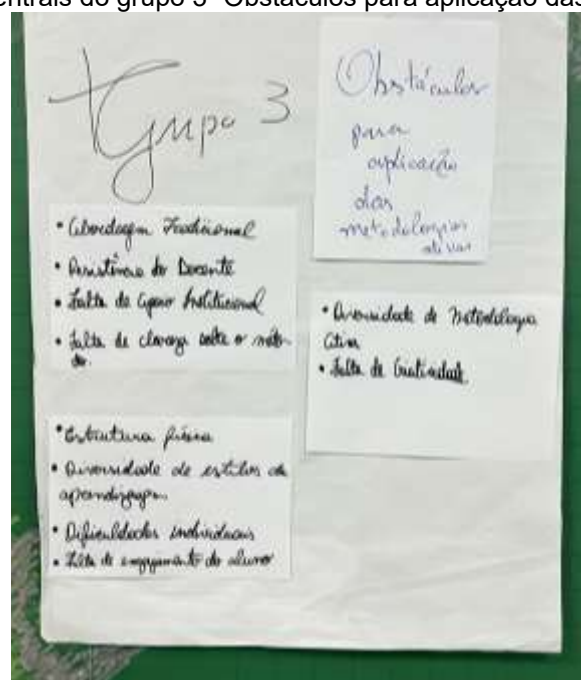 entrais do grupo 3 "Obstáculos para aplicação das
Grupo 3
Obstáculos
para
aplicação
das
metodologias
ativas
• Abordagem Tradicional
• Resistência do Docente
• Falta de Apoio Institucional
• Falta de clareza sobre o méto-
do.
• Diversidade de Metodologia
Ativa
• Falta de Criatividade
• Estrutura física
• Diversidade de estilos de
aprendizagem
• Dificuldades individuais
• Falta de engajamento do aluno